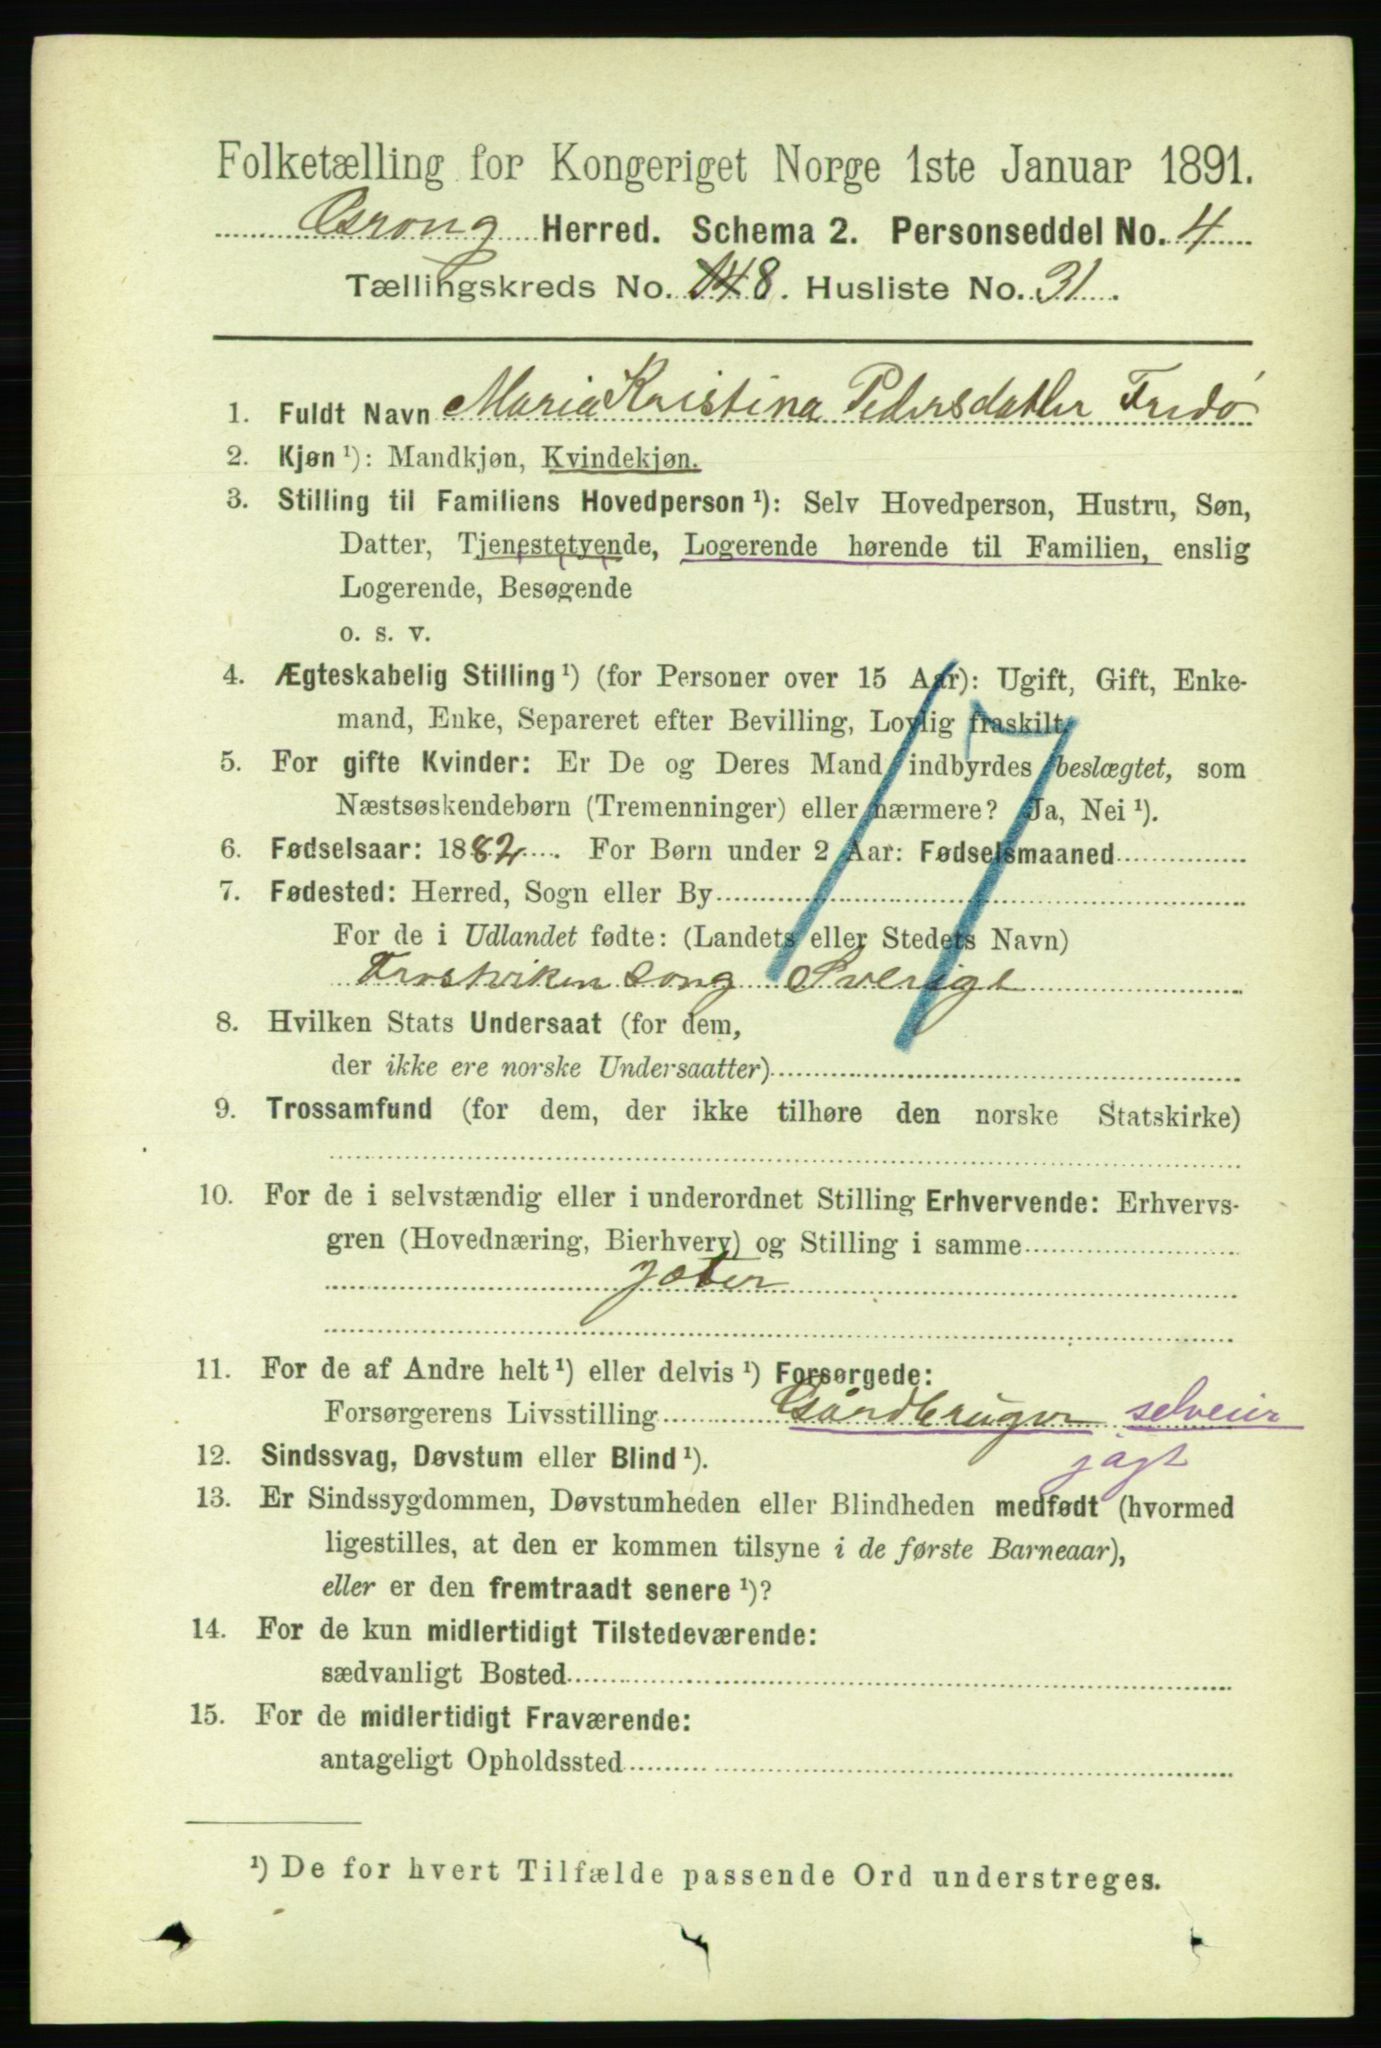 Folketælling for Kongeriget Norge 1ste Januar 1891.
Grong Herred. Schema 2. Personseddel No. 4
Tællingskreds No. 8. Husliste No. 31.
1. Fuldt Navn Maria Kristina Pedersdatter
2. Kjøn ¹): Mandkjøn, Kvindekjøn.
3. Stilling til Familiens Hovedperson ¹): Selv Hovedperson, Hustru, Søn,
Datter, Tjenestetyende, Logerende hørende til Familien, enslig
Logerende, Besøgende
o. s. v.
4. Ægteskabelig Stilling ¹) (for Personer over 15 Aar): Ugift, Gift, Enke-
mand, Enke, Separeret efter Bevilling, Lovlig fraskilt.
17
5. For gifte Kvinder: Er De og Deres Mand indbyrdes beslægtet, som
Næstsøskendebørn (Tremenninger) eller nærmere? Ja, Nei ¹).
6. Fødselsaar: 1882. For Børn under 2 Aar: Fødselsmaaned
7. Fødested: Herred, Sogn eller By
For de i Udlandet fødte: (Landets eller Stedets Navn)
Frostviken Song Sverige
8. Hvilken Stats Undersaat (for dem,
der ikke ere norske Undersaatter)
9. Trossamfund (for dem, der ikke tilhøre den norske Statskirke)
10. For de i selvstændig eller i underordnet Stilling Erhvervende: Erhvervs-
gren (Hovednæring, Bierhverv) og Stilling i samme
11. For de af Andre helt ¹) eller delvis ¹) Forsørgede:
Forsørgerens Livsstilling Gårdbruger selveier
jagt
12. Sindssvag, Døvstum eller Blind ¹).
13. Er Sindssygdommen, Døvstumheden eller Blindheden medfødt (hvormed
ligestilles, at den er kommen tilsyne i de første Barneaar),
eller er den fremtraadt senere ¹)?
14. For de kun midlertidigt Tilstedeværende:
sædvanligt Bosted
15. For de midlertidigt Fraværende:
antageligt Opholdssted
¹) De for hvert Tilfælde passende Ord understreges.